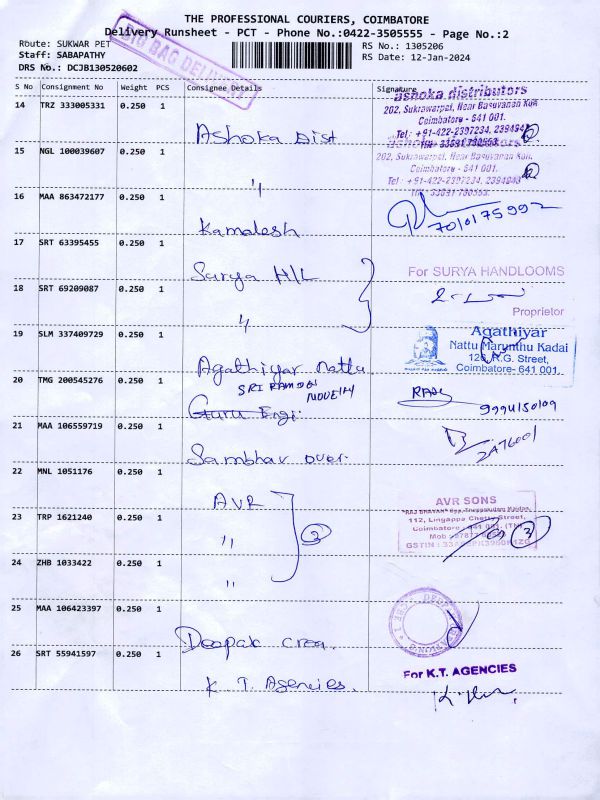 THE PROFESSIONAL COURIERS, COIMBATORE
Delivery Runsheet - PCT - Phone No.:0422-3505555 - Page No.:2
BIG BAG DELIVERY
Route: SUKWAR PET
RS No.: 1305206
Staff: SABAPATHY
RS Date: 12-Jan-2024
DRS No.: DCJB130520602
S No Consignment No Weight PCS Consignee Details Signature
14 TRZ 333005331 0.250 1 Ashoka Dist
ashoka distributors
202, Sukrawarpet, Near Basuvanan Koil
Coimbatore - 641 001.
Tel : +91-422-2397234, 2394943
15 NGL 100039607 0.250 1 "
202, Sukrawarpet, Near Basuvanan Koil
Coimbatore - 641 001.
Tel : +91-422-2397234, 2394943
16 MAA 863472177 0.250 1 Kamalesh
7010175992
17 SRT 63395455 0.250 1 Surya H/L
For SURYA HANDLOOMS
18 SRT 69209087 0.250 1 "
Proprietor
19 SLM 337409729 0.250 1 Agathiyar Nattu
Agathiyar
Nattu Marunthu Kadai
126, R.G. Street,
Coimbatore- 641 001.
20 TMG 200545276 0.250 1 Guru Engi.
SRI RAMDEV
9994150109
21 MAA 106559719 0.250 1 Sambhav over.
2476001
22 MNL 1051176 0.250 1 AVR
AVR SONS
112, Lingappa Chetty Street,
Coimbatore - 641 001. (TN)
23 TRP 1621240 0.250 1 "
3
3
24 ZHB 1033422 0.250 1 "
25 MAA 106423397 0.250 1 Deepak Crea.
26 SRT 55941597 0.250 1 K. T. Agencies.
For K.T. AGENCIES